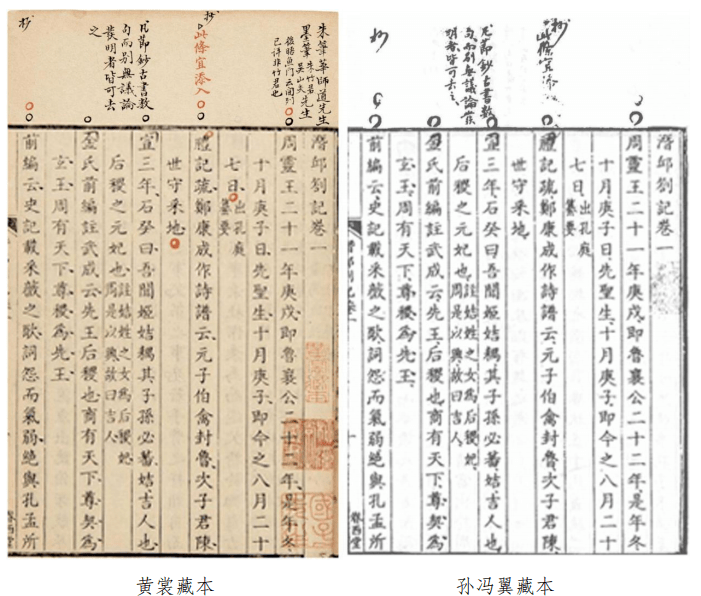 朱筆華師道先生
墨筆李竹君吴山夫先生
抄
此條宜添入
凡節鈔古書數
句而别無議論
發明者皆可去
之
抄
周靈王二十一年庚戌即魯襄公二十二年是年冬
十月庚子日先聖生十月庚子即今之八月二十
七日出孔庭纂要
禮記疏鄭康成作詩譜云元子伯禽封魯次子君陳
世守釆地
宣三年石癸曰吾聞姬姞耦其子孫必蕃姞吉人也
后稷之元妃也註姞姓之女為后稷妃周是以興故曰吉人
金氏前編註武成云先王后稷也商有天下尊契為
玄王周有天下尊稷為先王
前編云史記載釆薇之歌詞怨而氣弱絕與孔孟所
眷西堂
黄裳藏本
抄
此條宜添入
凡節鈔古書數
句而别無議論發
明者皆可去之
抄
潛邱劄記卷一
周靈王二十一年庚戌即魯襄公二十二年是年冬
十月庚子日先聖生十月庚子即今之八月二十
七日出孔庭纂要
禮記疏鄭康成作詩譜云元子伯禽封魯次子君陳
世守釆地
宣三年石癸曰吾聞姬姞耦其子孫必蕃姞吉人也
后稷之元妃也註姞姓之女為后稷妃周是以興故曰吉人
金氏前編註武成云先王后稷也商有天下尊契為
玄王周有天下尊稷為先王
前編云史記載釆薇之歌詞怨而氣弱絕與孔孟所
眷西堂
孙冯翼藏本